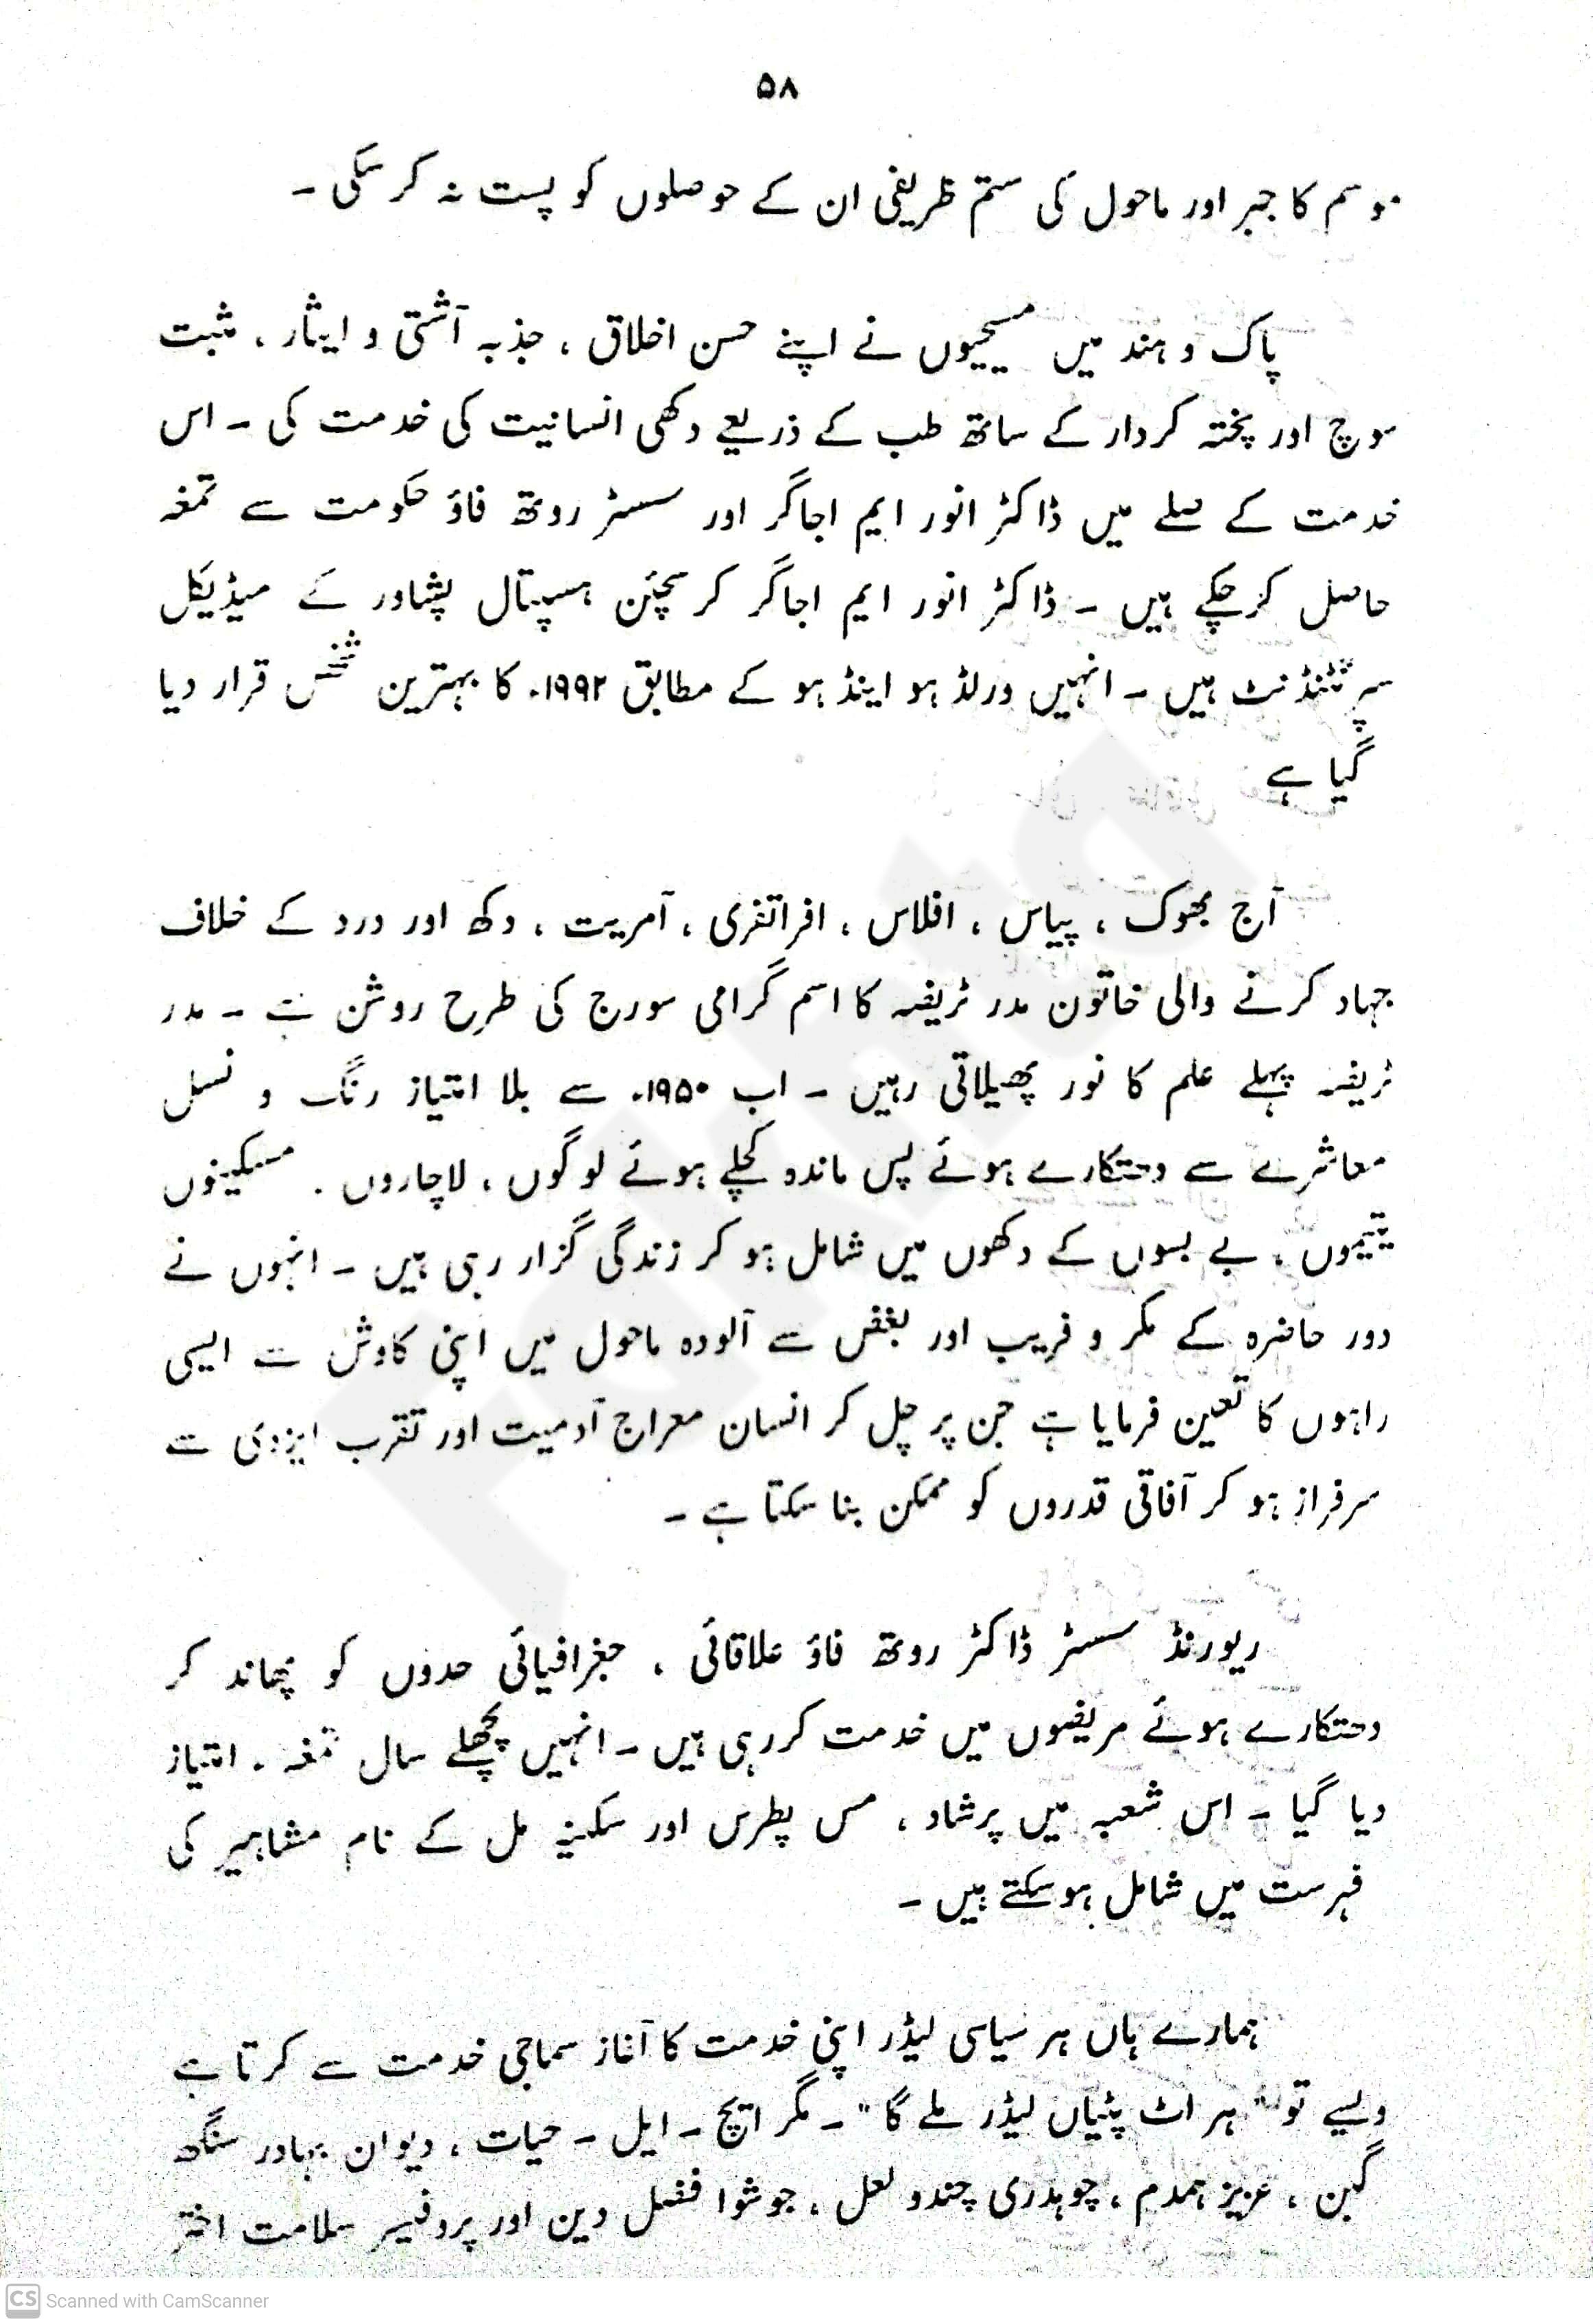 ۵۸
موسم کا جبر اور ماحول کی ستم ظریفی ان کے حوصلوں کو پست نہ کر سکی ۔
پاک و ہند میں مسیحیوں نے اپنے حسن اخلاق ، جذبہ آشتی و ایثار ، مثبت
سوچ اور پختہ کردار کے ساتھ طب کے ذریعے دکھی انسانیت کی خدمت کی ۔ اس
خدمت کے صلے میں ڈاکٹر انور ایم اجاگر اور سسٹر روتھ فاؤ حکومت سے تمغہ
حاصل کرچکے ہیں ۔ ڈاکٹر انور ایم اجاگر کرسچئن ہسپتال پشاور کے میڈیکل
سپرنٹنڈنٹ ہیں ۔ انہیں ورلڈ ہو اینڈ ہو کے مطابق ۱۹۹۲ء کا بہترین شخص قرار دیا
گیا ہے
آج بھوک ، پیاس ، افلاس ، افراتفری ، آمریت ، دکھ اور درد کے خلاف
جہاد کرنے والی خاتون مدر ٹریضہ کا اسم گرامی سورج کی طرح روشن ہے ۔ مدر
ٹریضہ پہلے علم کا نور پھیلاتی رہیں ۔ اب ۱۹۵۰ء سے بلا امتیاز رنگ و نسل
معاشرے سے دھتکارے ہوئے پس ماندہ کچلے ہوئے لوگوں ، لاچاروں ، مسکینوں
یتیموں ، بے بسوں کے دکھوں میں شامل ہو کر زندگی گزار رہی ہیں ۔ انہوں نے
دور حاضرہ کے مکر و فریب اور بغض سے آلودہ ماحول میں اپنی کاوش سے ایسی
راہوں کا تعین فرمایا ہے جن پر چل کر انسان معراج آدمیت اور تقرب ایزدی سے
سرفراز ہو کر آفاقی قدروں کو ممکن بنا سکتا ہے ۔
ریورنڈ سسٹر ڈاکٹر روتھ فاؤ علاقائی ، جغرافیائی حدوں کو پھاند کر
دھتکارے ہوئے مریضوں میں خدمت کررہی ہیں ۔ انہیں پچھلے سال تمغہ ء امتیاز
دیا گیا ۔ اس شعبہ میں پرشاد ، مس پطرس اور سکینہ مل کے نام مشاہیر کی
فہرست میں شامل ہوسکتے ہیں ۔
ہمارے ہاں ہر سیاسی لیڈر اپنی خدمت کا آغاز سماجی خدمت سے کرتا ہے
ویسے تو " ہر اٹ پٹیاں لیڈر ملے گا " ۔ مگر ایچ ۔ ایل ۔ حیات ، دیوان بہادر سنگھ
گبن ، عزیز ہمدم ، چوہدری چندو لعل ، جوشوا فضل دین اور پروفیسر سلامت اختر
CS Scanned with CamScanner